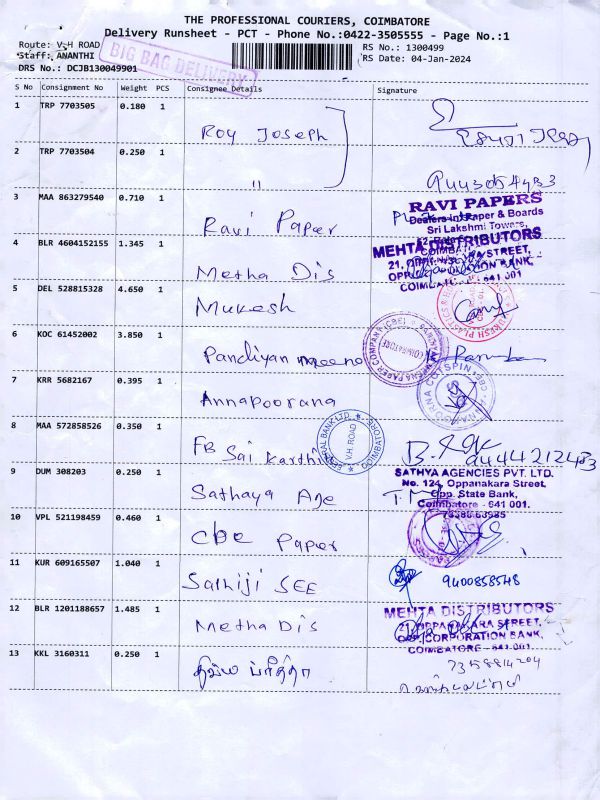 THE PROFESSIONAL COURIERS, COIMBATORE
Delivery Runsheet - PCT - Phone No.:0422-3505555 - Page No.:1
Route: V.H ROAD
RS No.: 1300499
Staff: ANANTHI
RS Date: 04-Jan-2024
DRS No.: DCJB130049901
BIG BAG DELIVERY
S No Consignment No Weight PCS Consignee Details Signature
1 TRP 7703505 0.180 1 Roy Joseph
2 TRP 7703504 0.250 1 "
3 MAA 863279540 0.710 1 Ravi Paper
RAVI PAPERS
Dealers in Paper & Boards
Sri Lakshmi Towers,
4 BLR 4604152155 1.345 1 Metha Dis
MEHTA DISTRIBUTORS
CORPORATION BANK,
5 DEL 528815328 4.650 1 Mukesh
6 KOC 61452002 3.850 1 Pandiyan meena
COIMBATORE
7 KRR 5682167 0.395 1 Annapoorana
8 MAA 572858526 0.350 1 FB Sai Karthi
V.H. ROAD
COIMBATORE
9 DUM 308203 0.250 1 Sathaya Age
SATHYA AGENCIES PVT. LTD.
No. 124, Oppanakara Street,
Opp. State Bank,
Coimbatore - 641 001.
10 VPL 521198459 0.460 1 CBE Paper
11 KUR 609165507 1.040 1 Sathiji SEE
9400858548
12 BLR 1201188657 1.485 1 Metha Dis
MEHTA DISTRIBUTORS
21, OPPANAKARA STREET,
OPP. CORPORATION BANK,
COIMBATORE - 641 001.
13 KKL 3160311 0.250 1